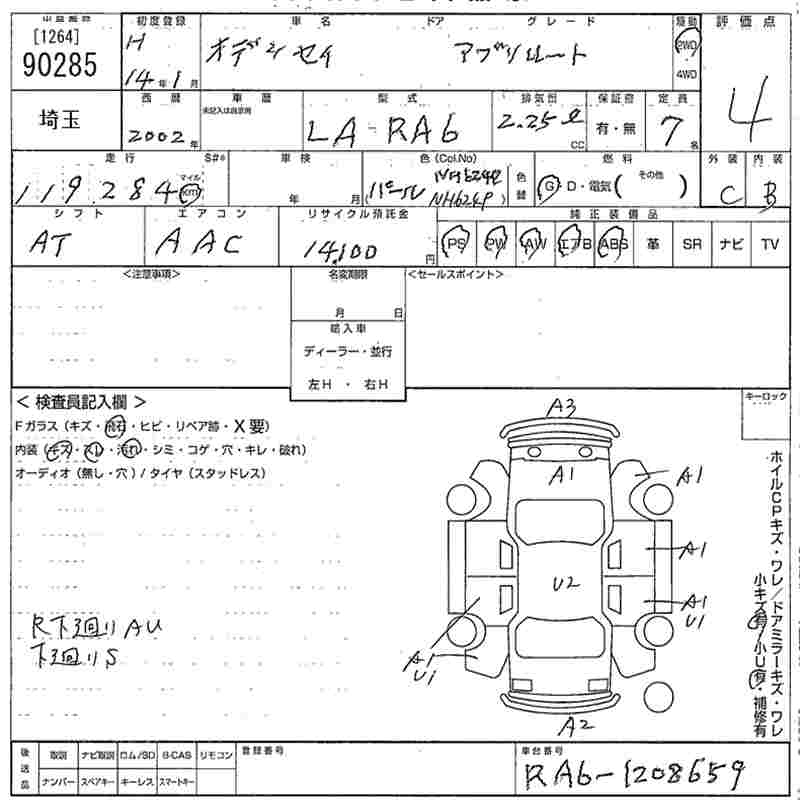 出品番号 初度登録 車名 ドア グレード 駆動 評価点
[1264] H オデッセイ アブソルート 2WD 4
90285 14年1月 4WD
埼玉 西暦 車暦 型式 排気量 保証書 定員
未記入は自家用
2002年 LA-RA6 2.25ℓ CC 有・無 7名
走行 S#* 車検 色(Col.No) 燃料 外装 内装
119,284 マイル km 年 月 パール NH624P 色替 G・D・電気( その他 ) C B
NH624P
シフト エアコン リサイクル預託金 純正装備品
AT AAC 14,100円 PS PW AW エアB ABS 革 SR ナビ TV
<注意事項> 名変期限 <セールスポイント>
月 日
輸入車
ディーラー・並行
左H ・ 右H
<検査員記入欄> キーロック
Fガラス(キズ・飛石・ヒビ・リペア跡・X要)
内装(キズ・スレ・汚れ・シミ・コゲ・穴・キレ・破れ)
オーディオ(無し・穴)/タイヤ(スタッドレス)
A3
A1 A1
A1
U2 A1
U1
A1
U1
A2
R下廻りAU
下廻りS
ホイルCPキズ・ワレ/ドアミラーキズ・ワレ
小キズ有/小U有・補修有
後送品 取説 ナビ取説 ロム/SD B-CAS リモコン 登録番号 車台番号
ナンバー スペアキー キーレス スマートキー RA6-1208659